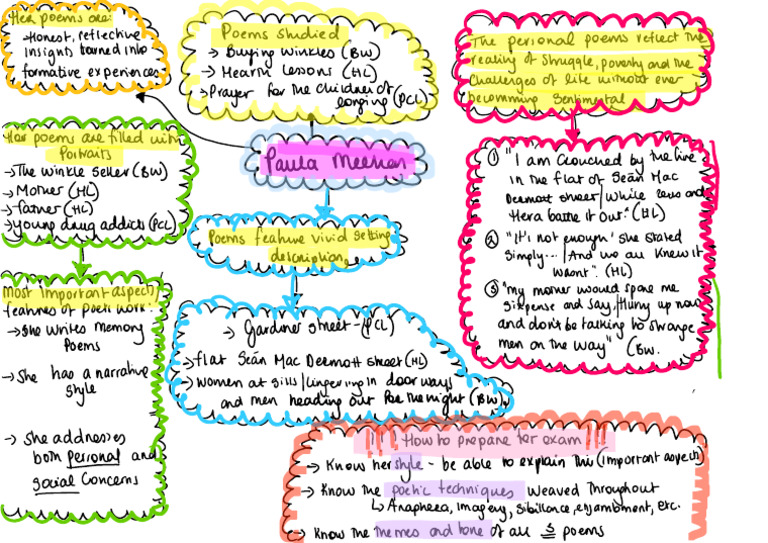 Her poems are:
→Honest, reflective
insights turned into
formative experiences
Poems studied
→ Buying winkles (BW)
→ Hearth lessons (HL)
→Prayer for the children of
longing (PCL)
The personal poems reflect the
reality of struggle, poverty and the
challenges of life without ever
becomming sentimental
Paula Meehan
Her poems are filled with
Portraits
→The winkle seller (BW)
→Mother (HL)
→father (HL)
→young drug addicts (PCL)
Poems feature vivid setting
description.
① "I am crouched by the fire
in the flat of Seán Mac
Dermott street/While Zeus and
Hera battle it out." (HL)
② "'It's not enough' she stated
simply... /And we all knew it
wasn't". (HL)
③ "my mother would spare me
sixpense and say,/Hurry up now
and don't be talking to strange
men on the way" (BW.
Most important aspects
features of poetic work:
→She writes Memory
Poems
→She has a narrative
style
→ She addresses
both personal and
social concerns
→ Gardiner street-(PCL)
→flat Seán Mac Dermott street (HL)
→women at sills/lingering in door ways
and men heading out for the night (BW)
!!! How to prepare for exam !!!
→ Know her style - be able to explain this (important aspect)
→ Know the poetic techniques weaved throughout
↳ Anaphera, imagery, sibillance, enjambment, etc.
→ Know the themes and tone of all 3 poems